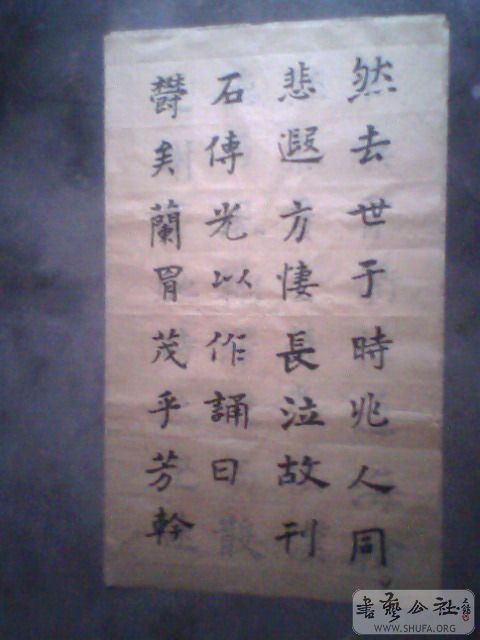 然去世于時兆人同
悲遐方悽長泣故刊
石傳光以作誦曰
欝矣蘭胄茂乎芳幹
書藝公社
WWW.SHUFA.ORG